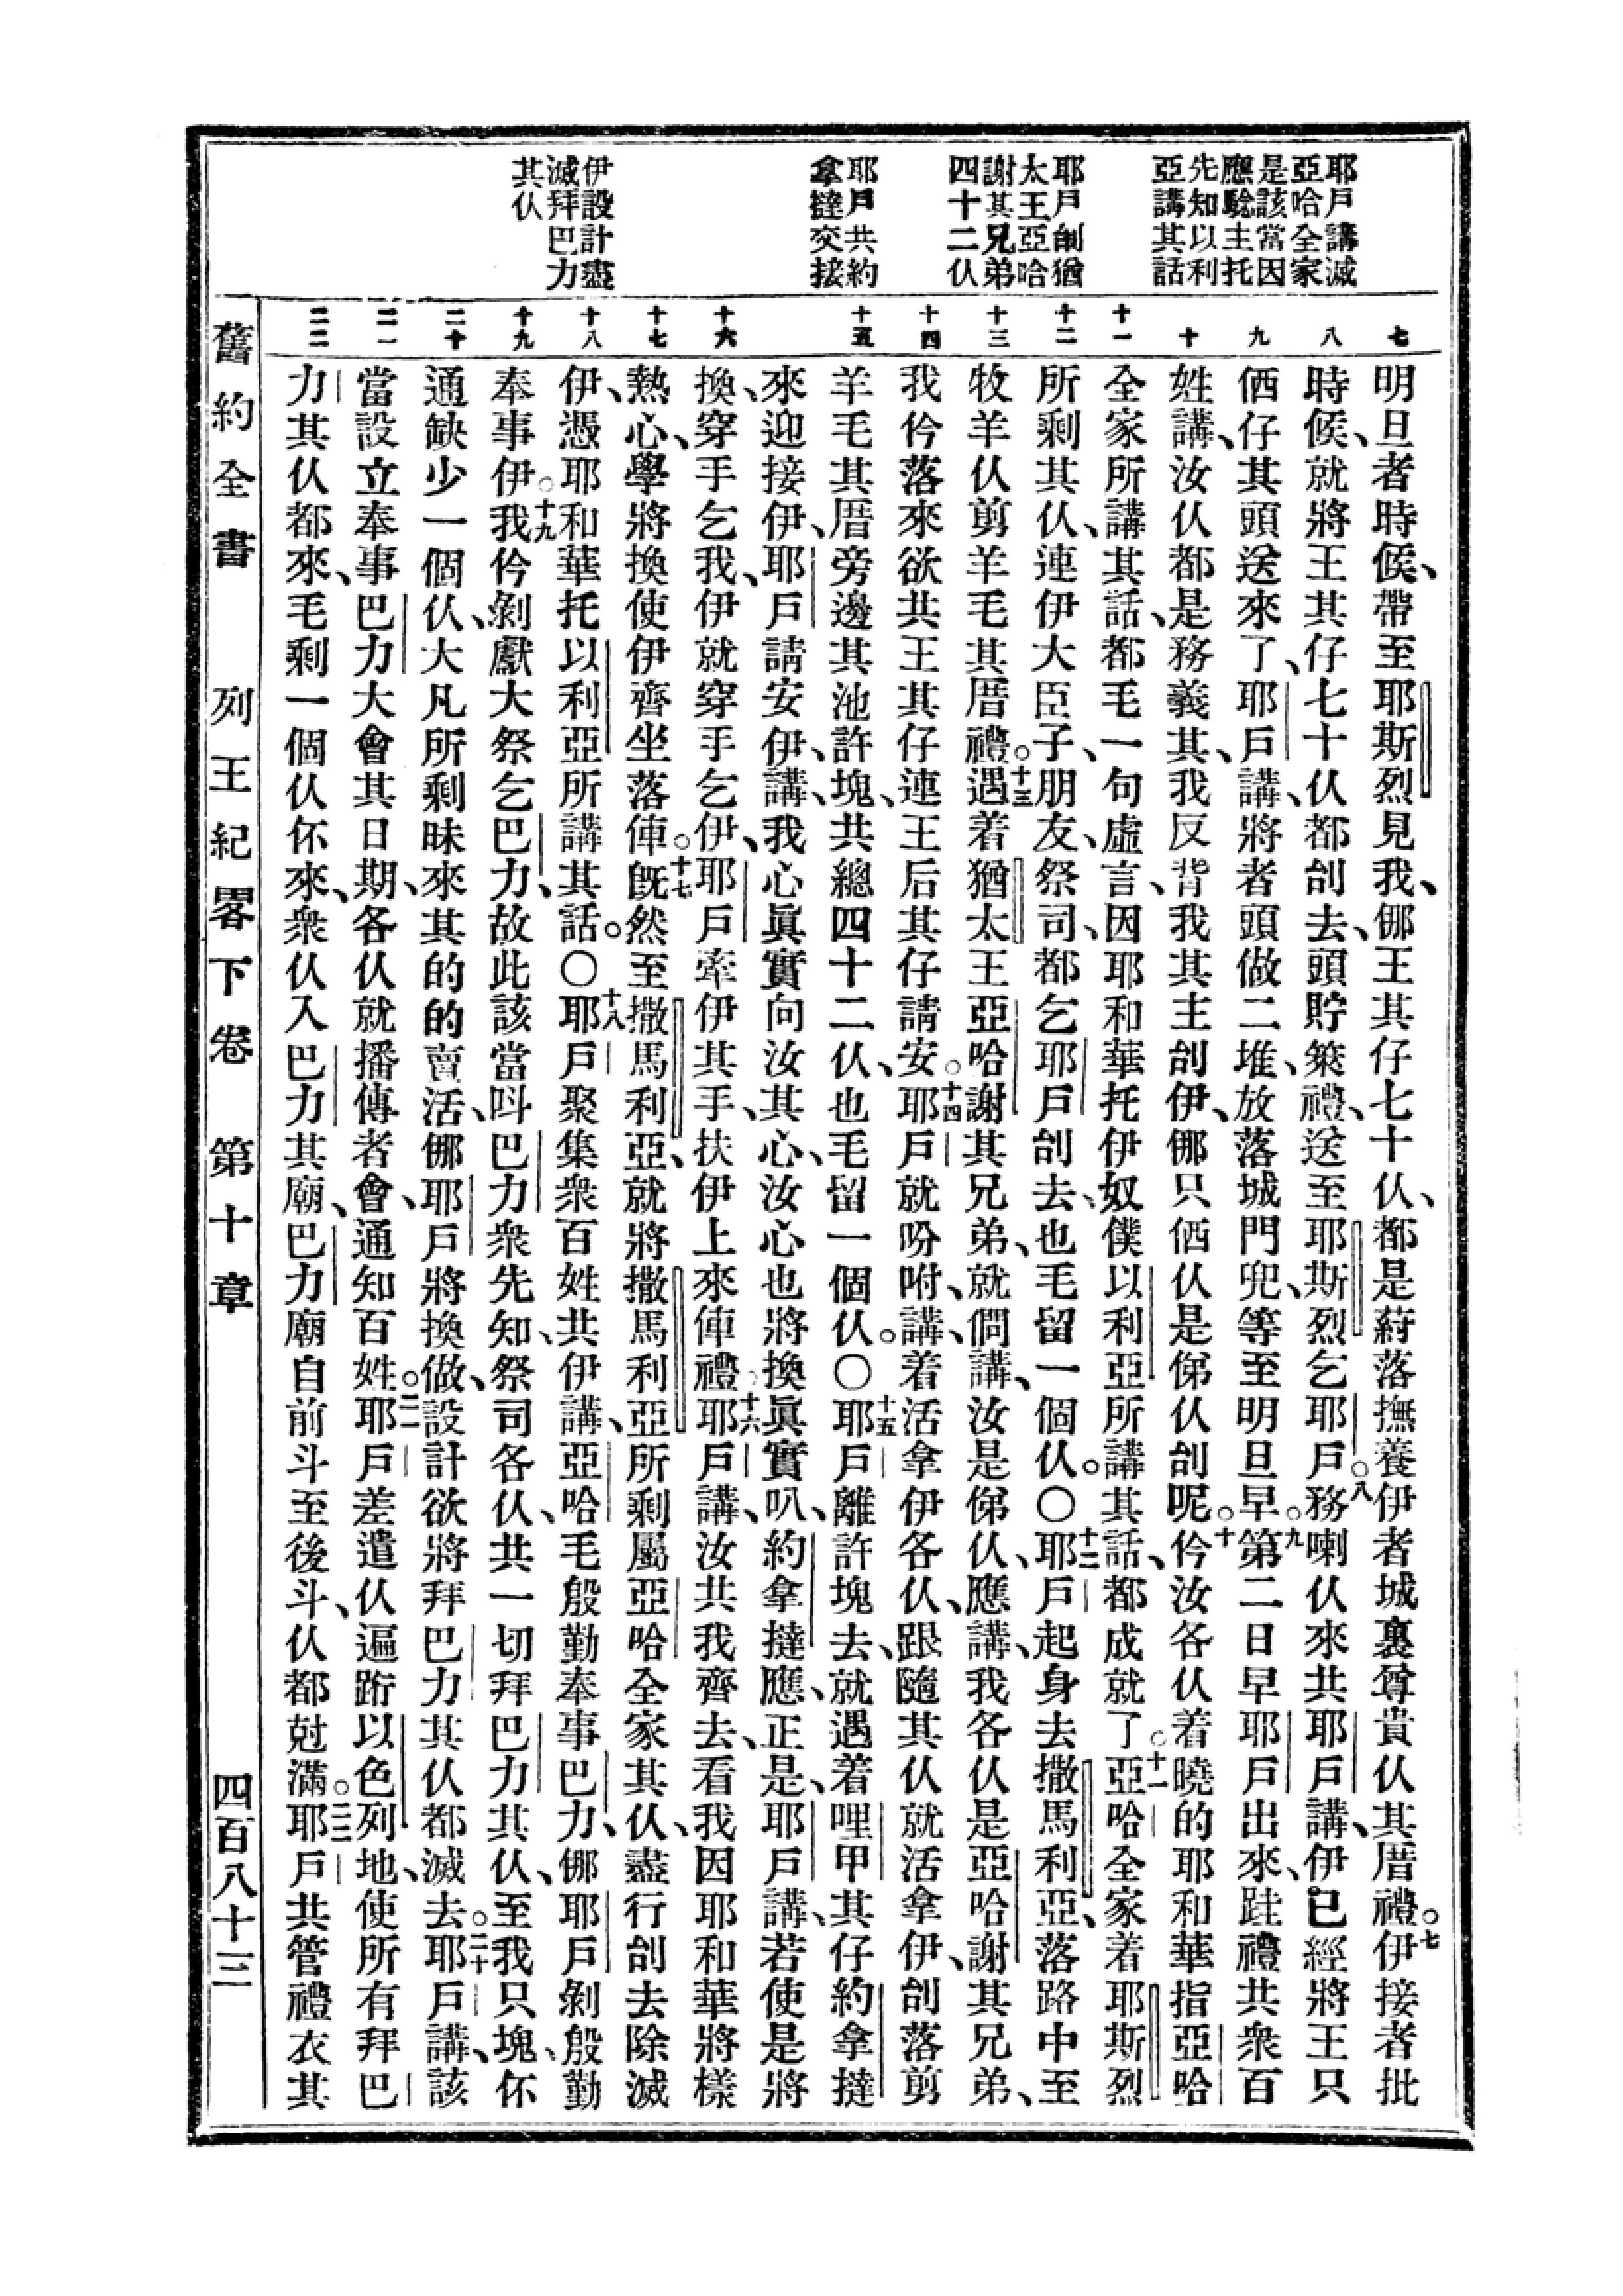 耶戶講滅
亞哈全家
是該當因
應驗主托
先知以利
亞講其話
耶戶刣猶
太王亞哈
謝其兄弟
四十二仫
耶戶共約
拿撻交接
伊設計盡
滅拜巴力
其仫
七
八
九
十
十一
十二
十三
十四
十五
十六
十七
十八
十九
二十
二一
二二
明旦者時候、帶至耶斯烈見我、㑚王其仔七十仫、都是蒔落撫養伊者城裏尊貴仫其厝禮。七伊接者批
時候、就將王其仔七十仫都刣去、頭貯簗禮、送至耶斯烈乞耶戶。八務喇仫來共耶戶講、伊已經將王只
伵仔其頭送來了、耶戶講、將者頭做二堆、放落城門兜、等至明旦早。九第二日早耶戶出來、跬禮共衆百
姓講、汝仫都是務義其、我反背我其主刣伊、㑚只伵仫是俤仫刣呢。十仱汝各仫着曉的耶和華指亞哈
全家所講其話、都毛一句虛言、因耶和華托伊奴僕以利亞所講其話、都成就了。十一亞哈全家着耶斯烈
所剩其仫、連伊大臣子、朋友、祭司、都乞耶戶刣去、也毛留一個仫。〇十二耶戶起身去撒馬利亞、落路中至
牧羊仫剪羊毛其厝禮。十三遇着猶太王亞哈謝其兄弟、就問講、汝是俤仫、應講、我各仫是亞哈謝其兄弟、
我仱落來欲共王其仔連王后其仔請安。十四耶戶就吩咐、講、着活拿伊各仫、跟隨其仫就活拿伊、刣落剪
羊毛其厝旁邊其池許塊、共總四十二仫、也毛留一個仫。〇十五耶戶離許塊去、就遇着哩甲其仔約拿撻
來迎接伊、耶戶請安伊、講、我心眞實向汝其心、汝心也將換眞實叭、約拿撻應、正是、耶戶講、若使是將
換、穿手乞我、伊就穿手乞伊、耶戶牽伊其手、扶伊上來俥禮。十六耶戶講、汝共我齊去、看我因耶和華將樣
熱心、學將換使伊齊坐落俥。十七旣然至撒馬利亞、就將撒馬利亞所剩屬亞哈全家其仫、盡行刣去除滅
伊、憑耶和華托以利亞所講其話。〇十八耶戶聚集衆百姓共伊講、亞哈毛殷勤奉事巴力、㑚耶戶剝殷勤
奉事伊。十九我仱剝獻大祭乞巴力、故此該當叫巴力衆先知、祭司各仫、共一切拜巴力其仫、至我只塊、伓
通缺少一個仫、大凡所剩昧來其的的賣活、㑚耶戶將換做、設計欲將拜巴力其仫都滅去。二十耶戶講、該
當設立奉事巴力大會其日期、各仫就播傳者會、通知百姓。二一耶戶差遣仫遍跡以色列地、使所有拜巴
力其仫都來、毛剩一個仫伓來、衆仫入巴力其廟、巴力廟自前斗至後斗、仫都尅滿。二二耶戶共管禮衣其
舊約全書 列王紀畧下卷 第十章 四百八十三